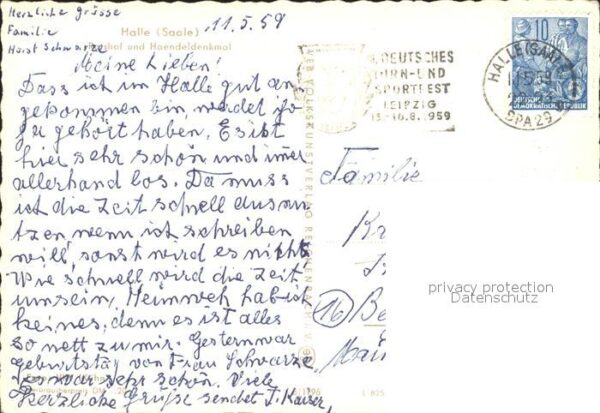 Herzliche grüsse
Familie
Horst Schwarze
11.5.59
Halle (Saale)
und Haendeldenkmal
Meine Lieben!
Dass ich in Halle gut an
gekommen bin werdet ja
gehört haben. Es ist
hier sehr schön und imer
allerhand los. Da muss
ich die Zeit schnell ausnu
tzen wenn ist schreiben
will, sonst wird es nichts
Wie schnell wird die Zeit
um sein, Heimweh hab ist
keines, denn es ist alles
so nett zu mir. Gestern war
geburtstag von Frau Schwarze
es war sehr schön. Viele
herzliche Grüße sendet J. Kaiser,
DEUTSCHES
TURN-UND
SPORTFEST
LEIPZIG
13.-16.8.1959
HALLE (SAALE)
SPA 29
10
DEUTSCHE
DEMOKRATISCHE REPUBLIK
VOLKSKUNSTVERLAG REICHENBACH
Familie
16
privacy protection
Datenschutz